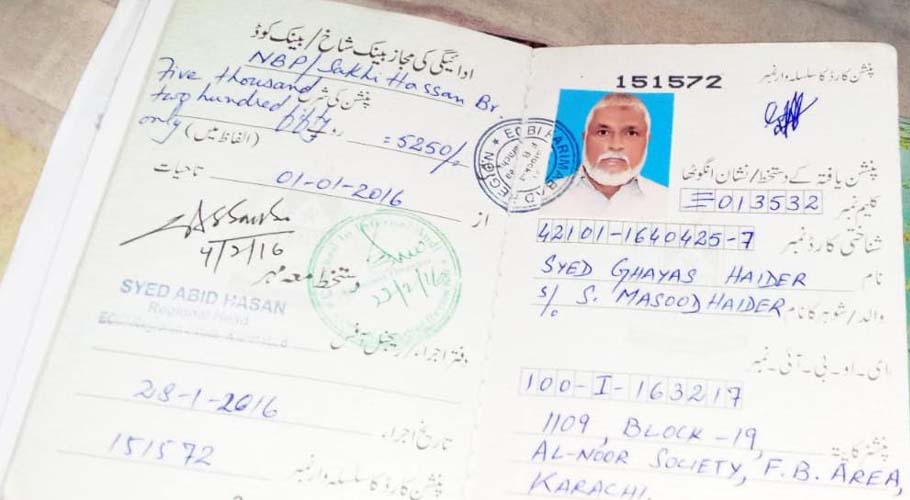 ادائیگی کی مجاز بینک شاخ / بینک کوڈ
NBP/Sakhi Hassan Br.
پنشن کی شرح
Five thousand
two hundred fifty
only
= 5250/-
(الفاظ میں)
01-01-2016
تاحیات
از
4/2/16
دستخط معہ مہر
SYED ABID HASAN
Regional Head
22/2/16
دفتر اجراء / ریجنل آفس
28-1-2016
تاریخ اجراء
151572
پنشن کارڈ کا سلسلہ وار نمبر
پنشن کارڈ کا سلسلہ وار نمبر
151572
EOBI KARIMABAD
REGION
پنشن یافتہ کے دستخط / نشان انگوٹھا
کلیم نمبر
013532
شناختی کارڈ نمبر
42101-1640425-7
نام
SYED GHAYAS HAIDER
والد / شوہر کا نام
S/o S. MASOOD HAIDER
ای۔او۔بی۔آئی۔نمبر
100-I-163217
1109, BLOCK-19,
AL-NOOR SOCIETY, F.B. AREA,
KARACHI.